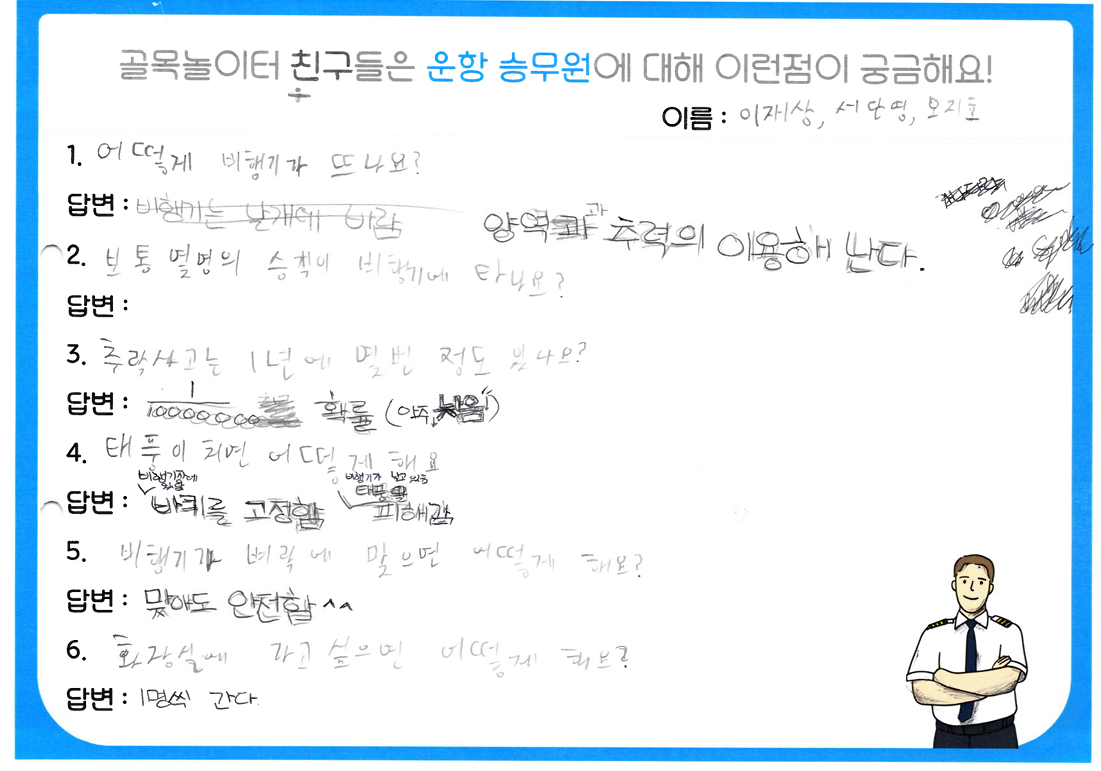 골목놀이터 친구들은 운항 승무원에 대해 이런점이 궁금해요!
이름 : 이재상, 서단영, 모지호
1. 어떻게 비행기가 뜨나요?
답변 : 비행기는 날개에 바람 양력과 추력의 이용해 난다.
2. 보통 몇명의 승객이 비행기에 타나요?
답변 :
3. 추락사고는 1년에 몇번 정도 있나요?
답변 : 1/100000000 확률 (아주 낮음)
4. 태풍이 치면 어떻게 해요
비행기가 날고 있음
태풍을
답변 : 바퀴를 고정함 피해감
5. 비행기가 벼락에 맞으면 어떻게 해요?
답변 : 맞아도 안전함^^
6. 화장실에 가고 싶으면 어떻게 해요?
답변 : 1명씩 간다.